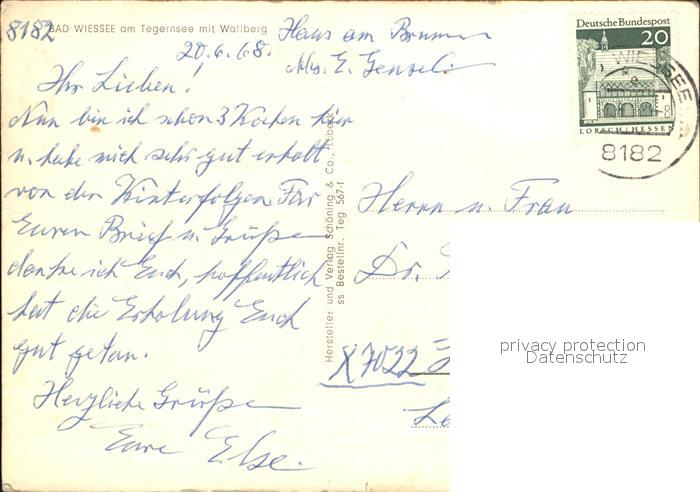 8182
BAD WIESSEE am Tegernsee mit Wallberg
Haus am Brunnen
20.6.68.
E. Gensel
Deutsche Bundespost
20
LORSCH/HESSEN
WIESSEE
8182
Ihr Lieben!
Nun bin ich schon 3 Wochen hier
u. habe mich sehr gut erholt
von den Für
Euren Brief u. Grüße
danke ich Euch, hoffentlich
hat die Erholung Euch
gut getan.
Herzliche Grüße
Eure Else.
Hersteller und Verlag Schöning & Co., Lübeck
ss Bestellnr. Teg 567-f
Herrn u. Frau
Dr.
X7022
Le
privacy protection
Datenschutz